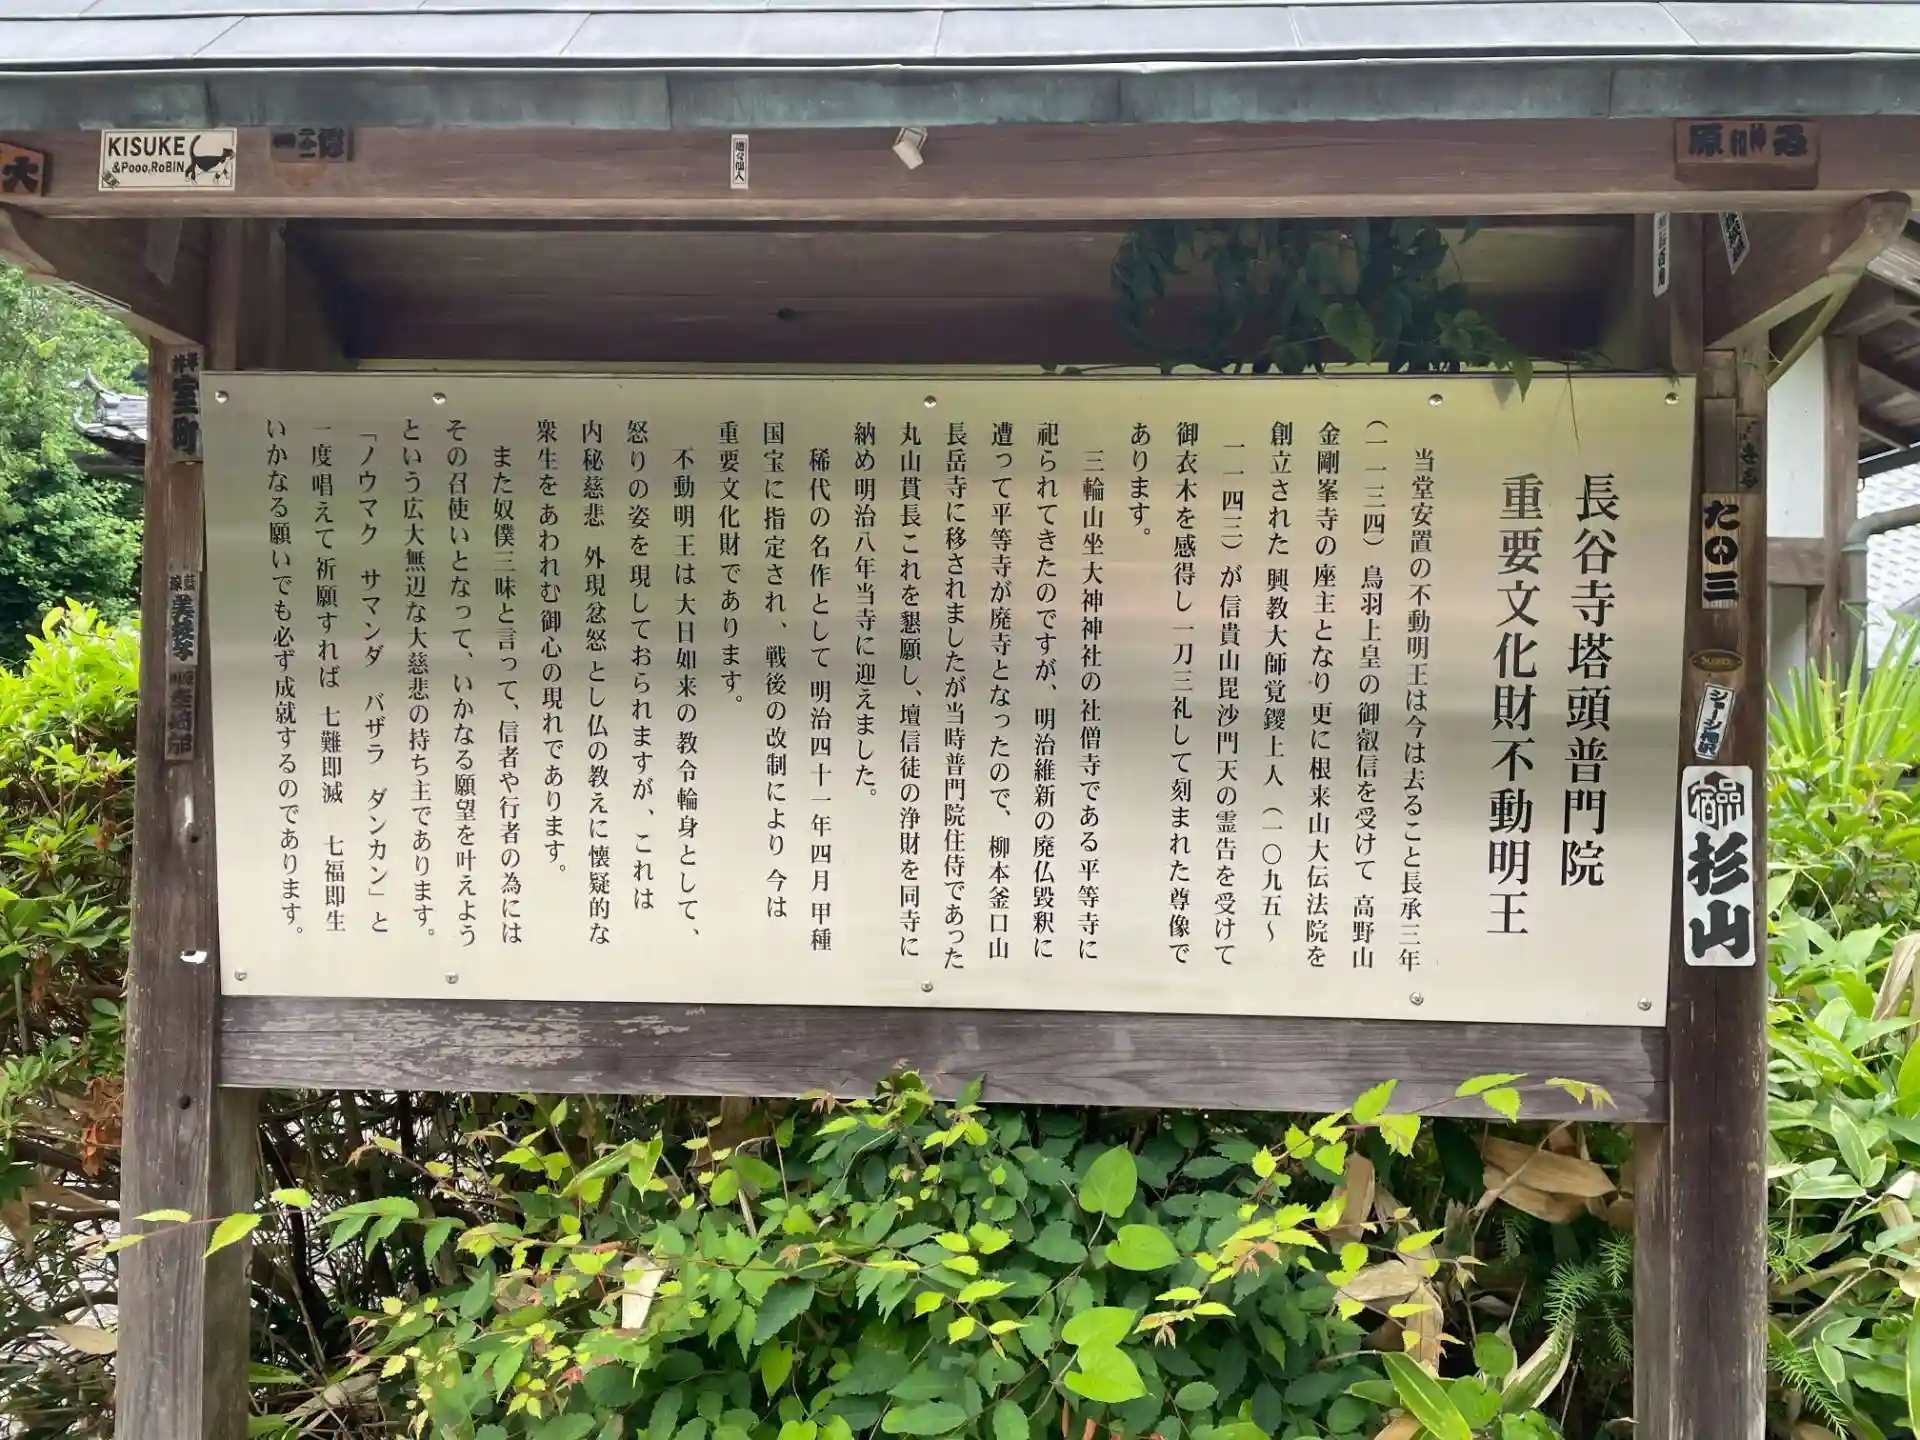 長谷寺塔頭普門院
重要文化財不動明王
当堂安置の不動明王は今は去ること長承三年
（一一三四）鳥羽上皇の御叡信を受けて 高野山
金剛峯寺の座主となり更に根来山大伝法院を
創立された 興教大師覚鑁上人（一〇九五～
一一四三）が信貴山毘沙門天の霊告を受けて
御衣木を感得し一刀三礼して刻まれた尊像で
あります。
三輪山坐大神神社の社僧寺である平等寺に
祀られてきたのですが、明治維新の廃仏毀釈に
遭って平等寺が廃寺となったので、柳本釜口山
長岳寺に移されましたが当時普門院住侍であった
丸山貫長これを懇願し、壇信徒の浄財を同寺に
納め明治八年当寺に迎えました。
稀代の名作として 明治四十一年四月 甲種
国宝に指定され、戦後の改制により 今は
重要文化財であります。
不動明王は 大日如来の教令輪身として、
怒りの姿を現しておられますが、これは
内秘慈悲 外現忿怒 とし仏の教えに懐疑的な
衆生をあわれむ御心の現れであります。
また奴僕三昧と言って、信者や行者の為には
その召使いとなって、いかなる願望を叶えよう
という広大無辺な大慈悲の持ち主であります。
「ノウマク サマンダ バザラ ダンカン」と
一度唱えて祈願すれば 七難即滅 七福即生
いかなる願いでも必ず成就するのであります。
KISUKE
&Pooo,RoBIN
大
原
室町
たの三
杉山